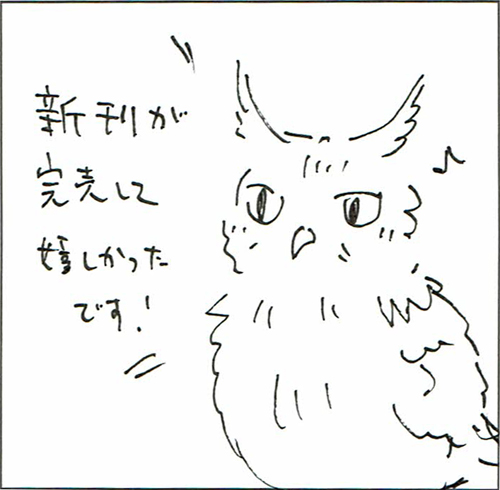 新刊が
完売して
嬉しかった
です!